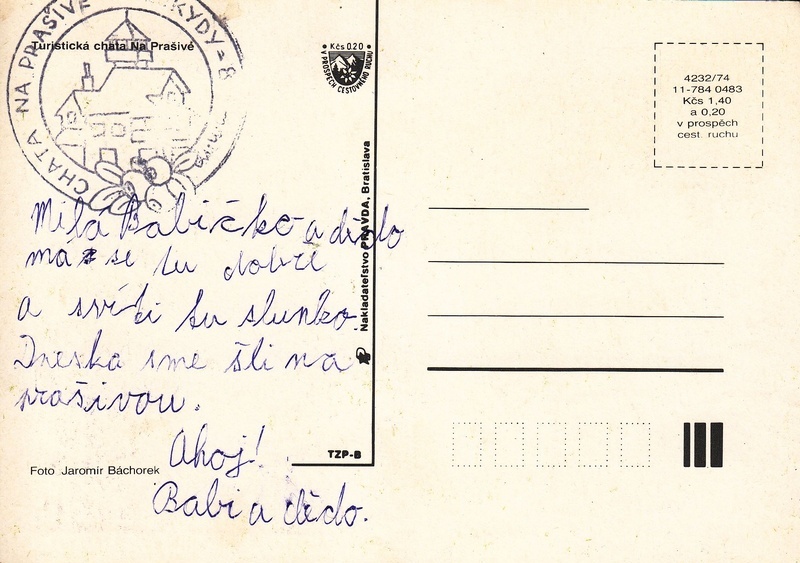 CHATA NA PRAŠIVÉ
KYDY - 8
Turistická chata Na Prašivé
• Kčs 020 •
V PROSPĚCH CESTOVNÉHO RUCHU
4232/74
11-784 0483
Kčs 1,40
a 0,20
v prospěch
cest. ruchu
Milá Babičko a dědo
se tu dobře
a svíti tu slunko
Dneska sme šli na
prašivou.
Ahoj!
Babi a dědo.
Nakladateľstvo PRAVDA, Bratislava
TZP-B
Foto Jaromír Báchorek